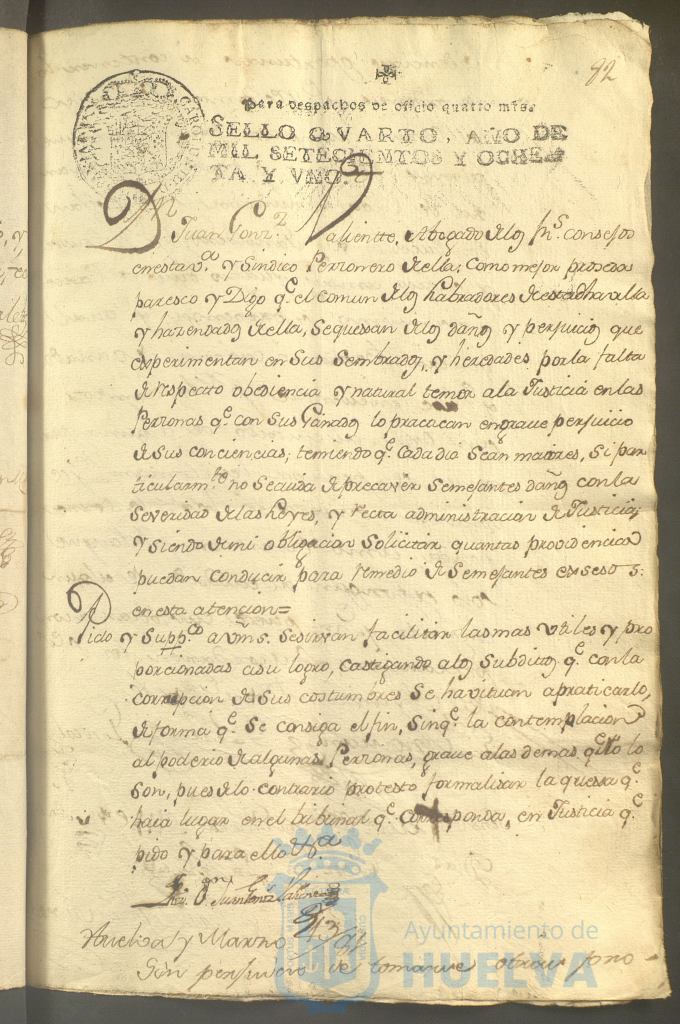 92
Para despachos de oficio quatro mrs.
SELLO QVARTO, AÑO DE
MIL SETECIENTOS Y OCHEN
TA Y VNO.
Dn Juan Gonz.z Valientte, Abogado de los rs. consejos
en esta v.a y Sindico Perzonero de ella; como mejor proceda
paresco y Digo q.e el comun de los Labradores de esta dha villa
y hazendados de ella, se quessan de los daños y perjuicios que
experimentan en sus sembrados, y heredades por la falta
de respecto obediencia y natural temor a la Justicia en las
Perzonas q.e con sus Ganados lo practican en grave perjuicio
de sus conciencias; temiendo q.e cada dia sean maiores, si par
ticularm.te no se cuida de precaver semejantes daños con la
severidad de las Leyes, y recta administracion de Justicia;
y siendo de mi obligacion solicitar quantas providencias
puedan conducir para remedio de semejantes exsesos:
en esta atencion=
Pido y supp.co a vms. se sirvan facilitar las mas utiles y pro
porcionadas a su logro, castigando a los subditos q.e con la
corrupcion de sus costumbres se havituan a praticarlo,
de forma q.e se consiga el fin, sin q.e la contemplacion
al poderio de algunas Perzonas, grave a las demas q.e no lo
son, pues de lo contrario protesto formalisar la quessa q.e
haia lugar en el tribunal q.e corresponda, en Justicia q.e
pido y para ello &a
Juan Gonz Valiente
Huelva y Marzo 13/81
Sin perjuicio de tomarse otras pro-
Ayuntamiento de
HUELVA